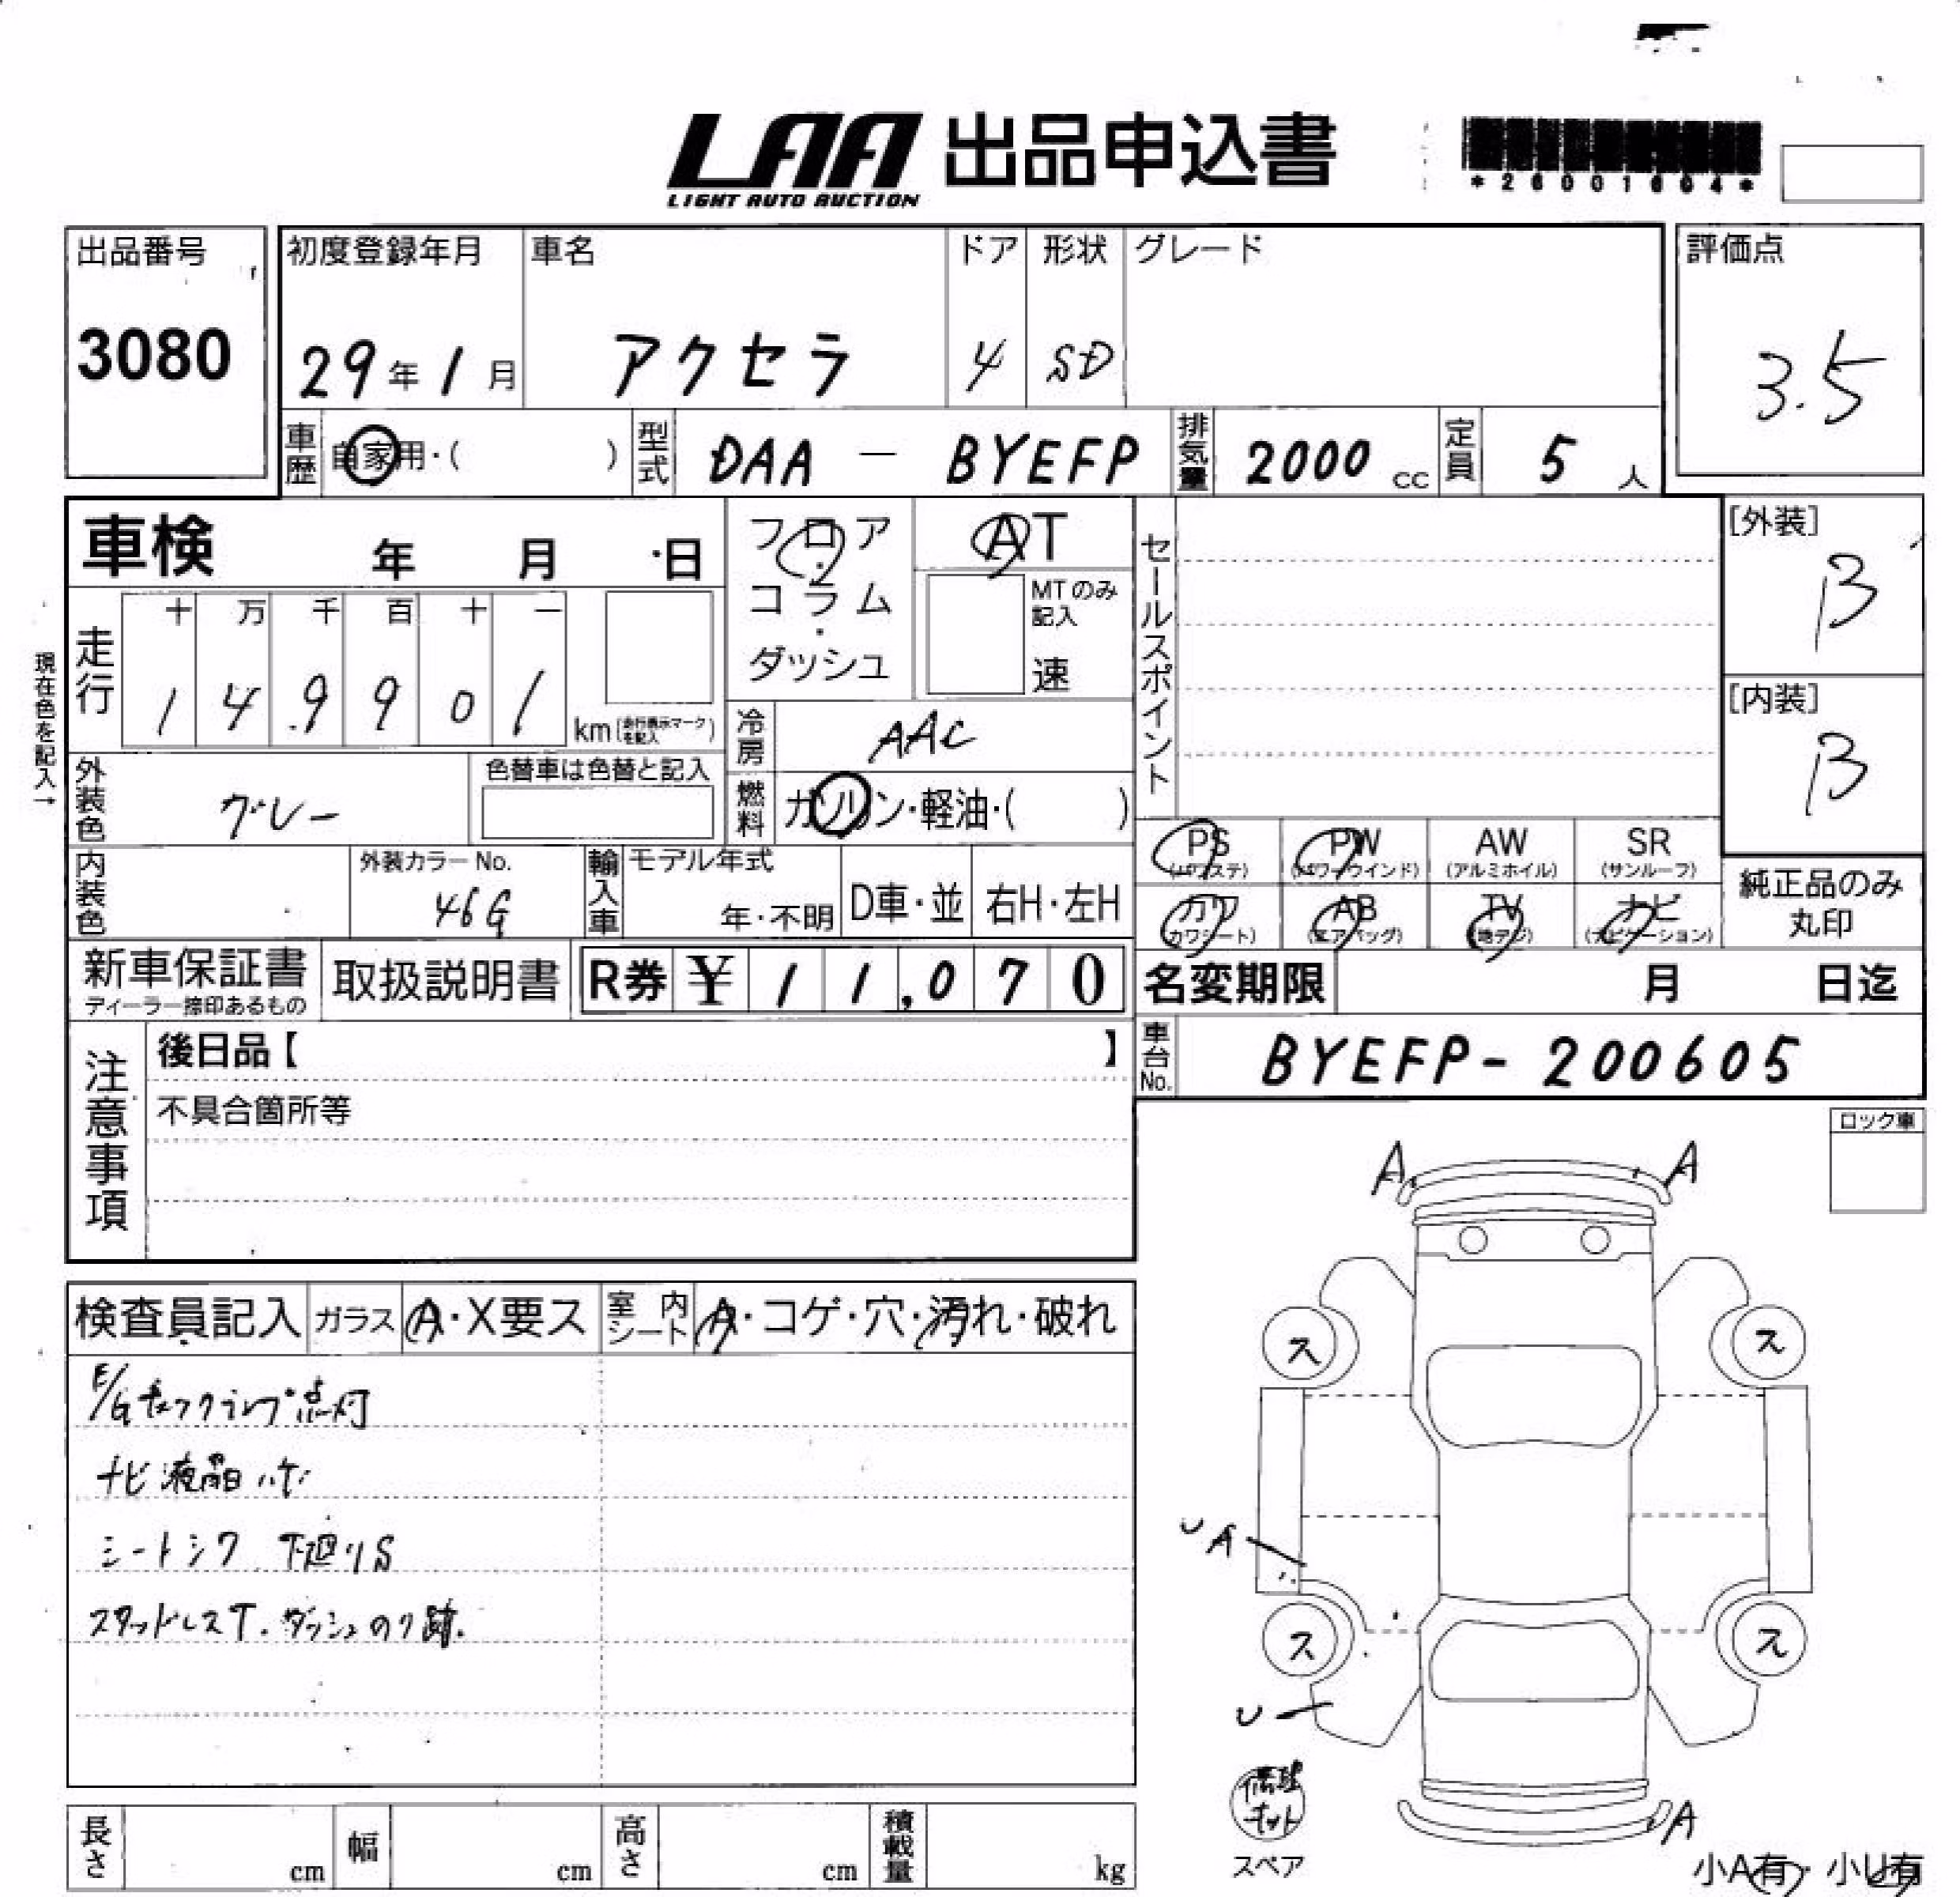 LAA 出品申込書
LIGHT AUTO AUCTION
*26001604*
出品番号
3080
初度登録年月
29年1月
車名
アクセラ
ドア
4
形状
SD
グレード
評価点
3.5
車歴
自家用・( )
型式
DAA － BYEFP
排気量
2000 cc
定員
5 人
車検 年 月 日
現在色を記入→
走行
十 万 千 百 十 一
1 4 9 9 0 1
km(走行表示マークを記入)
フロア・コラム・ダッシュ
AT
MTのみ記入
速
冷房
AAC
燃料
ガソリン・軽油・( )
外装色
グレー
色替車は色替と記入
内装色
外装カラーNo.
46G
輸入車
モデル年式
年・不明
D車・並
右H・左H
セールスポイント
[外装]
B
[内装]
B
PS
(パワステ)
PW
(パワーウインド)
AW
(アルミホイル)
SR
(サンルーフ)
カワ
(カワシート)
AB
(エアバッグ)
TV
(地デジ)
ナビ
(ナビゲーション)
純正品のみ
丸印
新車保証書
ディーラー捺印あるもの
取扱説明書
R券 ¥ 1 1,0 7 0
名変期限 月 日迄
車台No.
BYEFP-200605
注意事項
後日品【 】
不具合箇所等
ロック車
検査員記入
ガラス
A・X要ス
室内シート
A・コゲ・穴・汚れ・破れ
E/Gチェックランプ点灯
ナビ液晶ハゲ
シートシワ 下廻りS
スタッドレスT. ダッシュのり跡.
A
A
ス
ス
U A
ス
ス
U
修理キット
スペア
A
小A有・小U有
長さ
cm
幅
cm
高さ
cm
積載量
kg